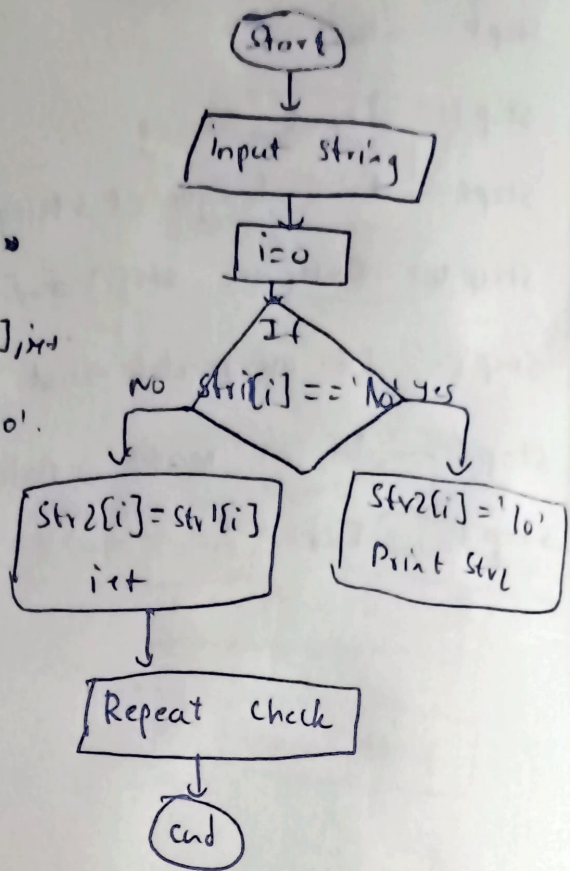 Start
input string
i=0
],i++
o'.
If
No Str1[i] == '\o' Yes
Str2[i] = Str1[i]
i++
Str2[i] = '\o'
Print Str2
Repeat Check
end